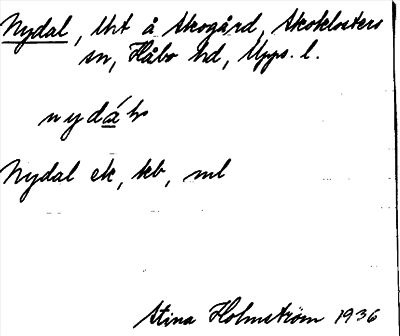 Nydal, lht å Skogård, Skoklosters
sn, Håbo hd, Upps. l.
nydáls
Nydal ek, kb, ml
Stina Holmström 1936